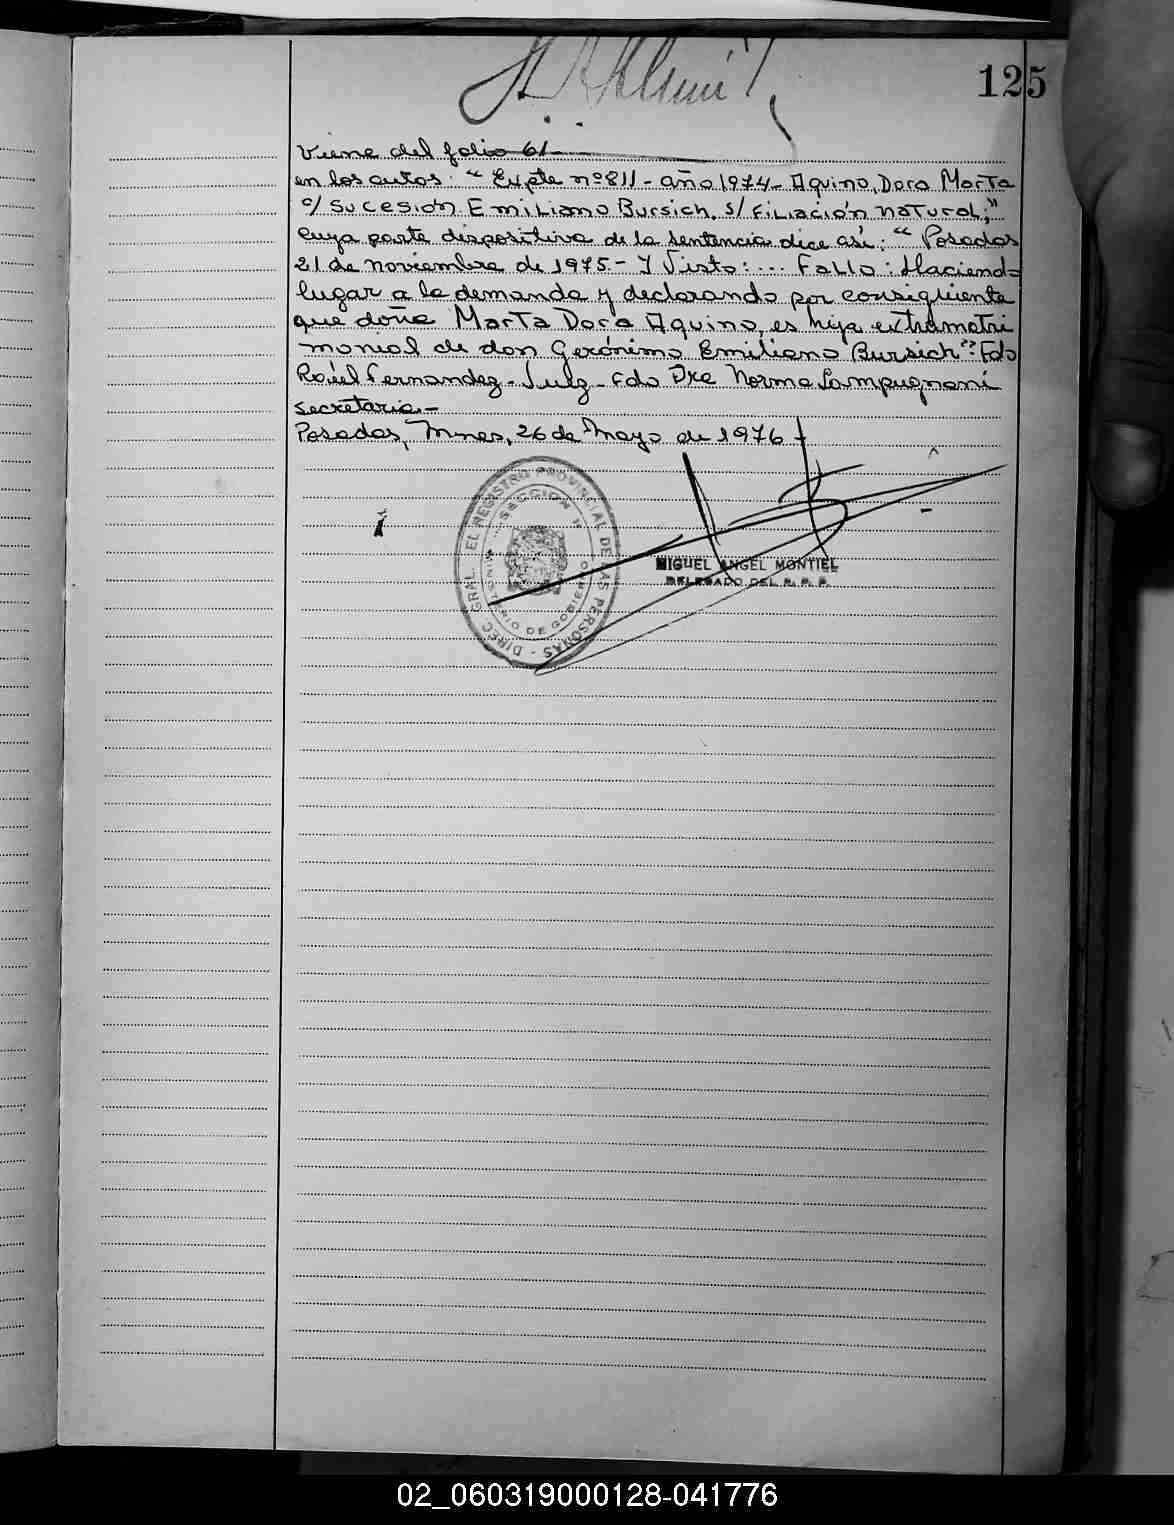 125
Viene del folio 61
en los autos: "Expte nº 811 - año 1974 - Aquino, Dora Marta
c/ Sucesión Emiliano Bursich, s/ Filiación natural;"
cuya parte dispositiva de la sentencia dice así: "Posadas
21 de noviembre de 1975 - Y Visto: ... Fallo: Haciendo
lugar a la demanda y declarando por consiguiente
que doña Marta Dora Aquino, es hija extramatri
monial de don Gerónimo Emiliano Bursich". Fdo
Raúl Fernandez - Juez - Fdo Dra Norma Lampugnani
secretaria -
Posadas, Mnes, 26 de Mayo de 1976 -
DIREC. GRAL. EL REGISTRO PROVINCIAL DE LAS PERSONAS -
SECCION
MINISTERIO DE GOBIERNO
MIGUEL ANGEL MONTIEL
DELEGADO DEL R. P. P.
02_060319000128-041776